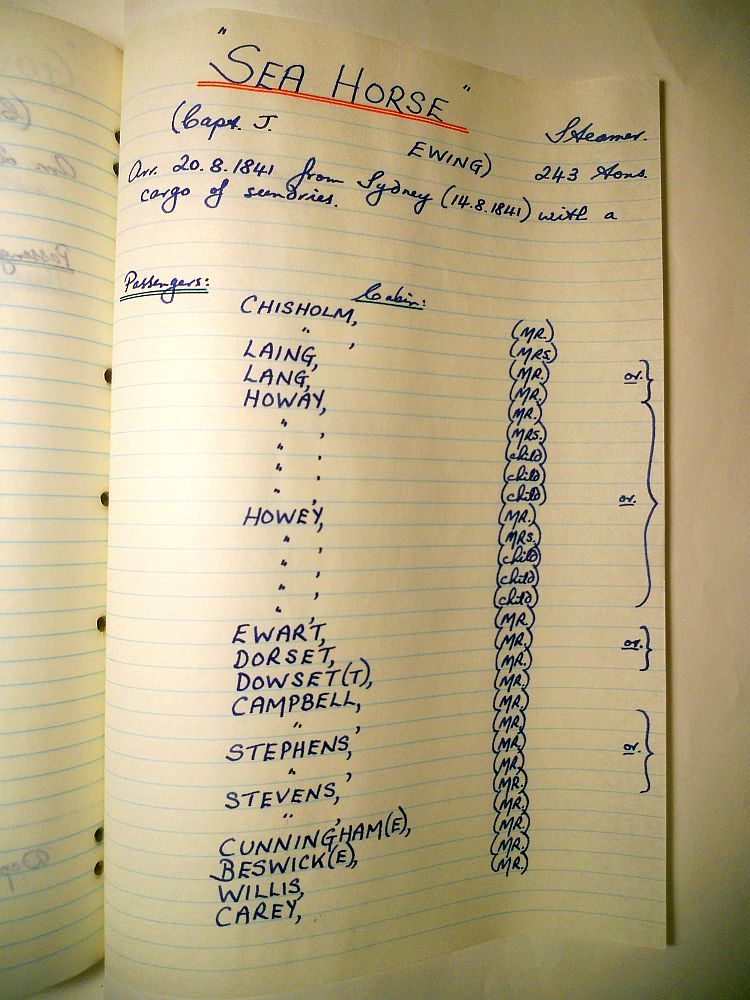 "SEA HORSE"
(Capt. J. EWING) Steamer.
243 tons.
Arr. 20.8.1841 from Sydney (14.8.1841) with a
cargo of sundries.
Passengers: Cabin:
CHISHOLM, (MR.)
" , (MRS.)
LAING, (MR.) or.
LANG, (MR.)
HOWAY, (MR.)
" , (MRS.)
" , (child)
" , (child)
" , (child) or.
HOWEY, (MR.)
" , (MRS.)
" , (child)
" , (child)
" , (child)
EWART, (MR.)
DORSET, (MR.) or.
DOWSET(T), (MR.)
CAMPBELL, (MR.)
" , (MR.)
STEPHENS, (MR.)
" , (MR.) or.
STEVENS, (MR.)
" , (MR.)
CUNNINGHAM(E), (MR.)
BESWICK(E), (MR.)
WILLIS, (MR.)
CAREY, (MR.)